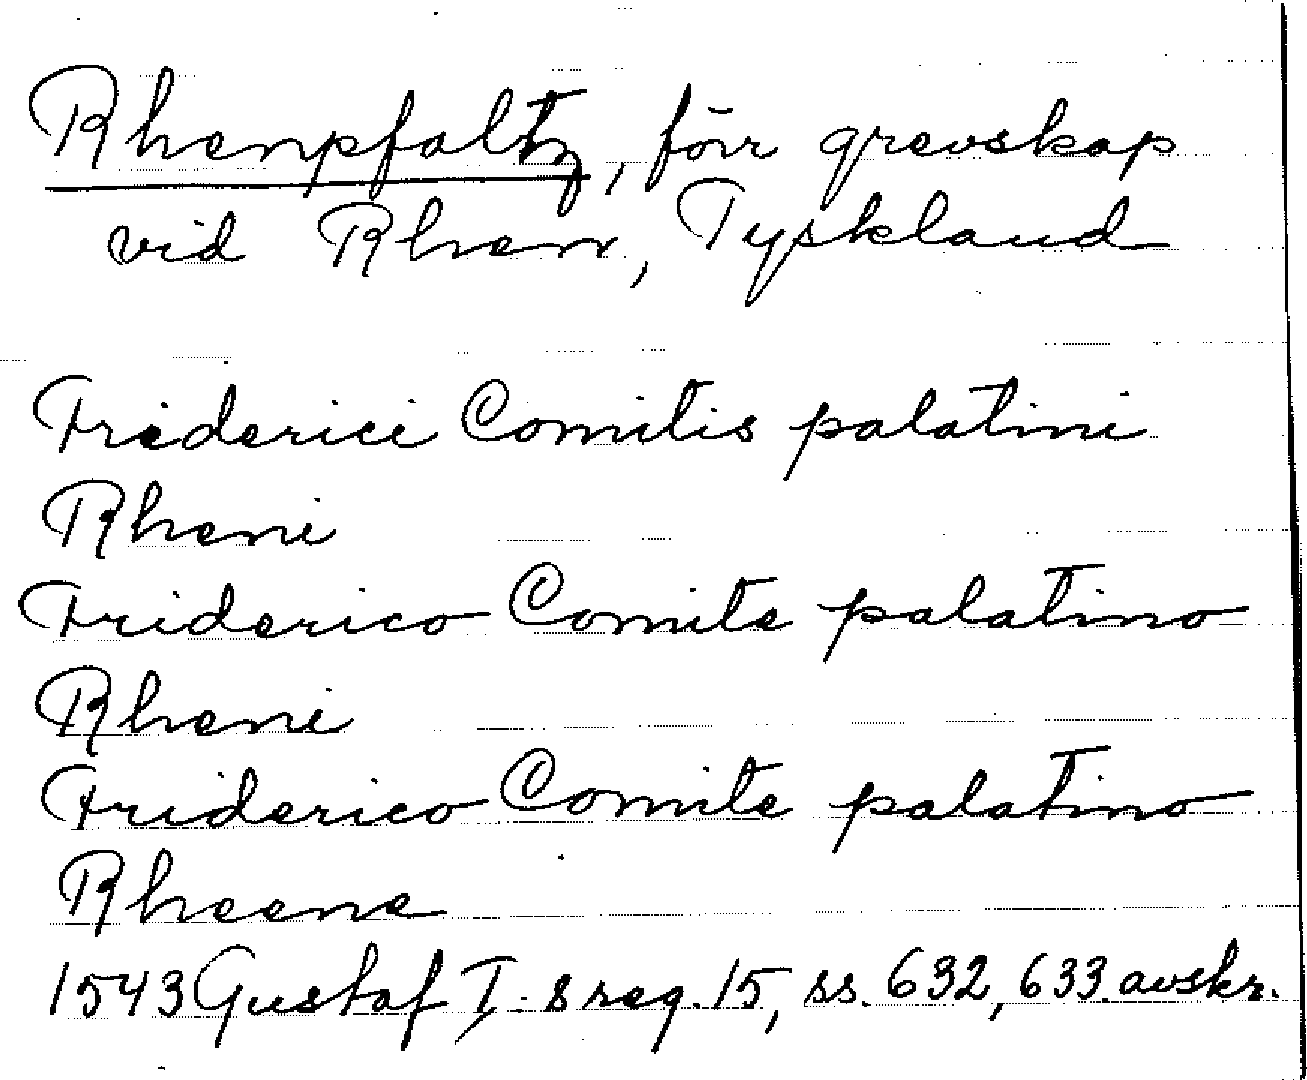 Rhenpfaltz, förr grevskap
vid Rhen, Tyskland
Friderici Comitis palatini
Rheni
Friderico Comite palatino
Rheni
Friderico Comite palatino
Rheene
1543 Gustaf I:s reg. 15, ss. 632, 633. avskr.